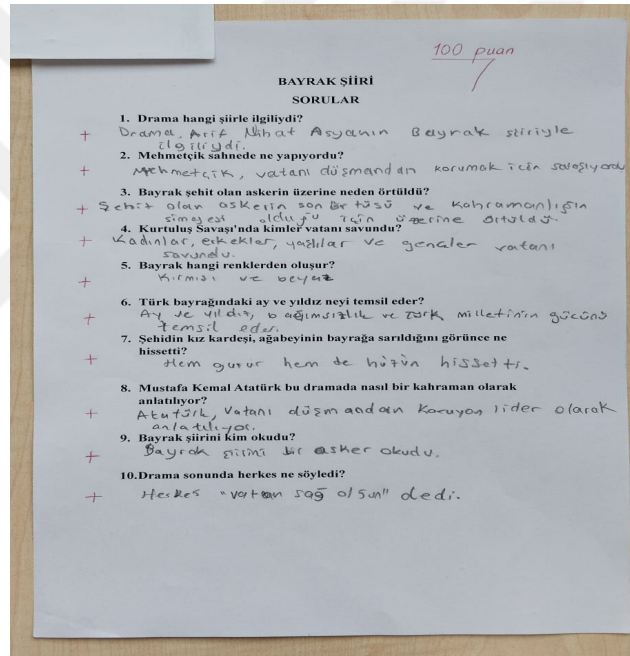 100 puan
BAYRAK ŞİİRİ
SORULAR
1. Drama hangi şiirle ilgiliydi?
+ Drama, Arif Nihat Asyanın Bayrak şiiriyle
ilgiliydi.
2. Mehmetçik sahnede ne yapıyordu?
+ Mehmetçik, vatanı düşmandan korumak için savaşıyordu
3. Bayrak şehit olan askerin üzerine neden örtüldü?
+ Şehit olan askerin son örtüsü ve kahramanlığın
simgesi olduğu için üzerine örtüldü.
4. Kurtuluş Savaşı'nda kimler vatanı savundu?
+ Kadınlar, erkekler, yaşlılar ve gençler vatanı
savundu.
5. Bayrak hangi renklerden oluşur?
+ Kırmızı ve beyaz
6. Türk bayrağındaki ay ve yıldız neyi temsil eder?
+ Ay ve yıldız, bağımsızlık ve Türk milletinin gücünü
temsil eder.
7. Şehidin kız kardeşi, ağabeyinin bayrağa sarıldığını görünce ne
hissetti?
+ Hem gurur hem de hüzün hissetti.
8. Mustafa Kemal Atatürk bu dramada nasıl bir kahraman olarak
anlatılıyor?
+ Atatürk, Vatanı düşmandan Koruyan lider olarak
anlatılıyor.
9. Bayrak şiirini kim okudu?
+ Bayrak şiirini bir asker okudu.
10.Drama sonunda herkes ne söyledi?
+ Herkes "vatan sağ olsun" dedi.